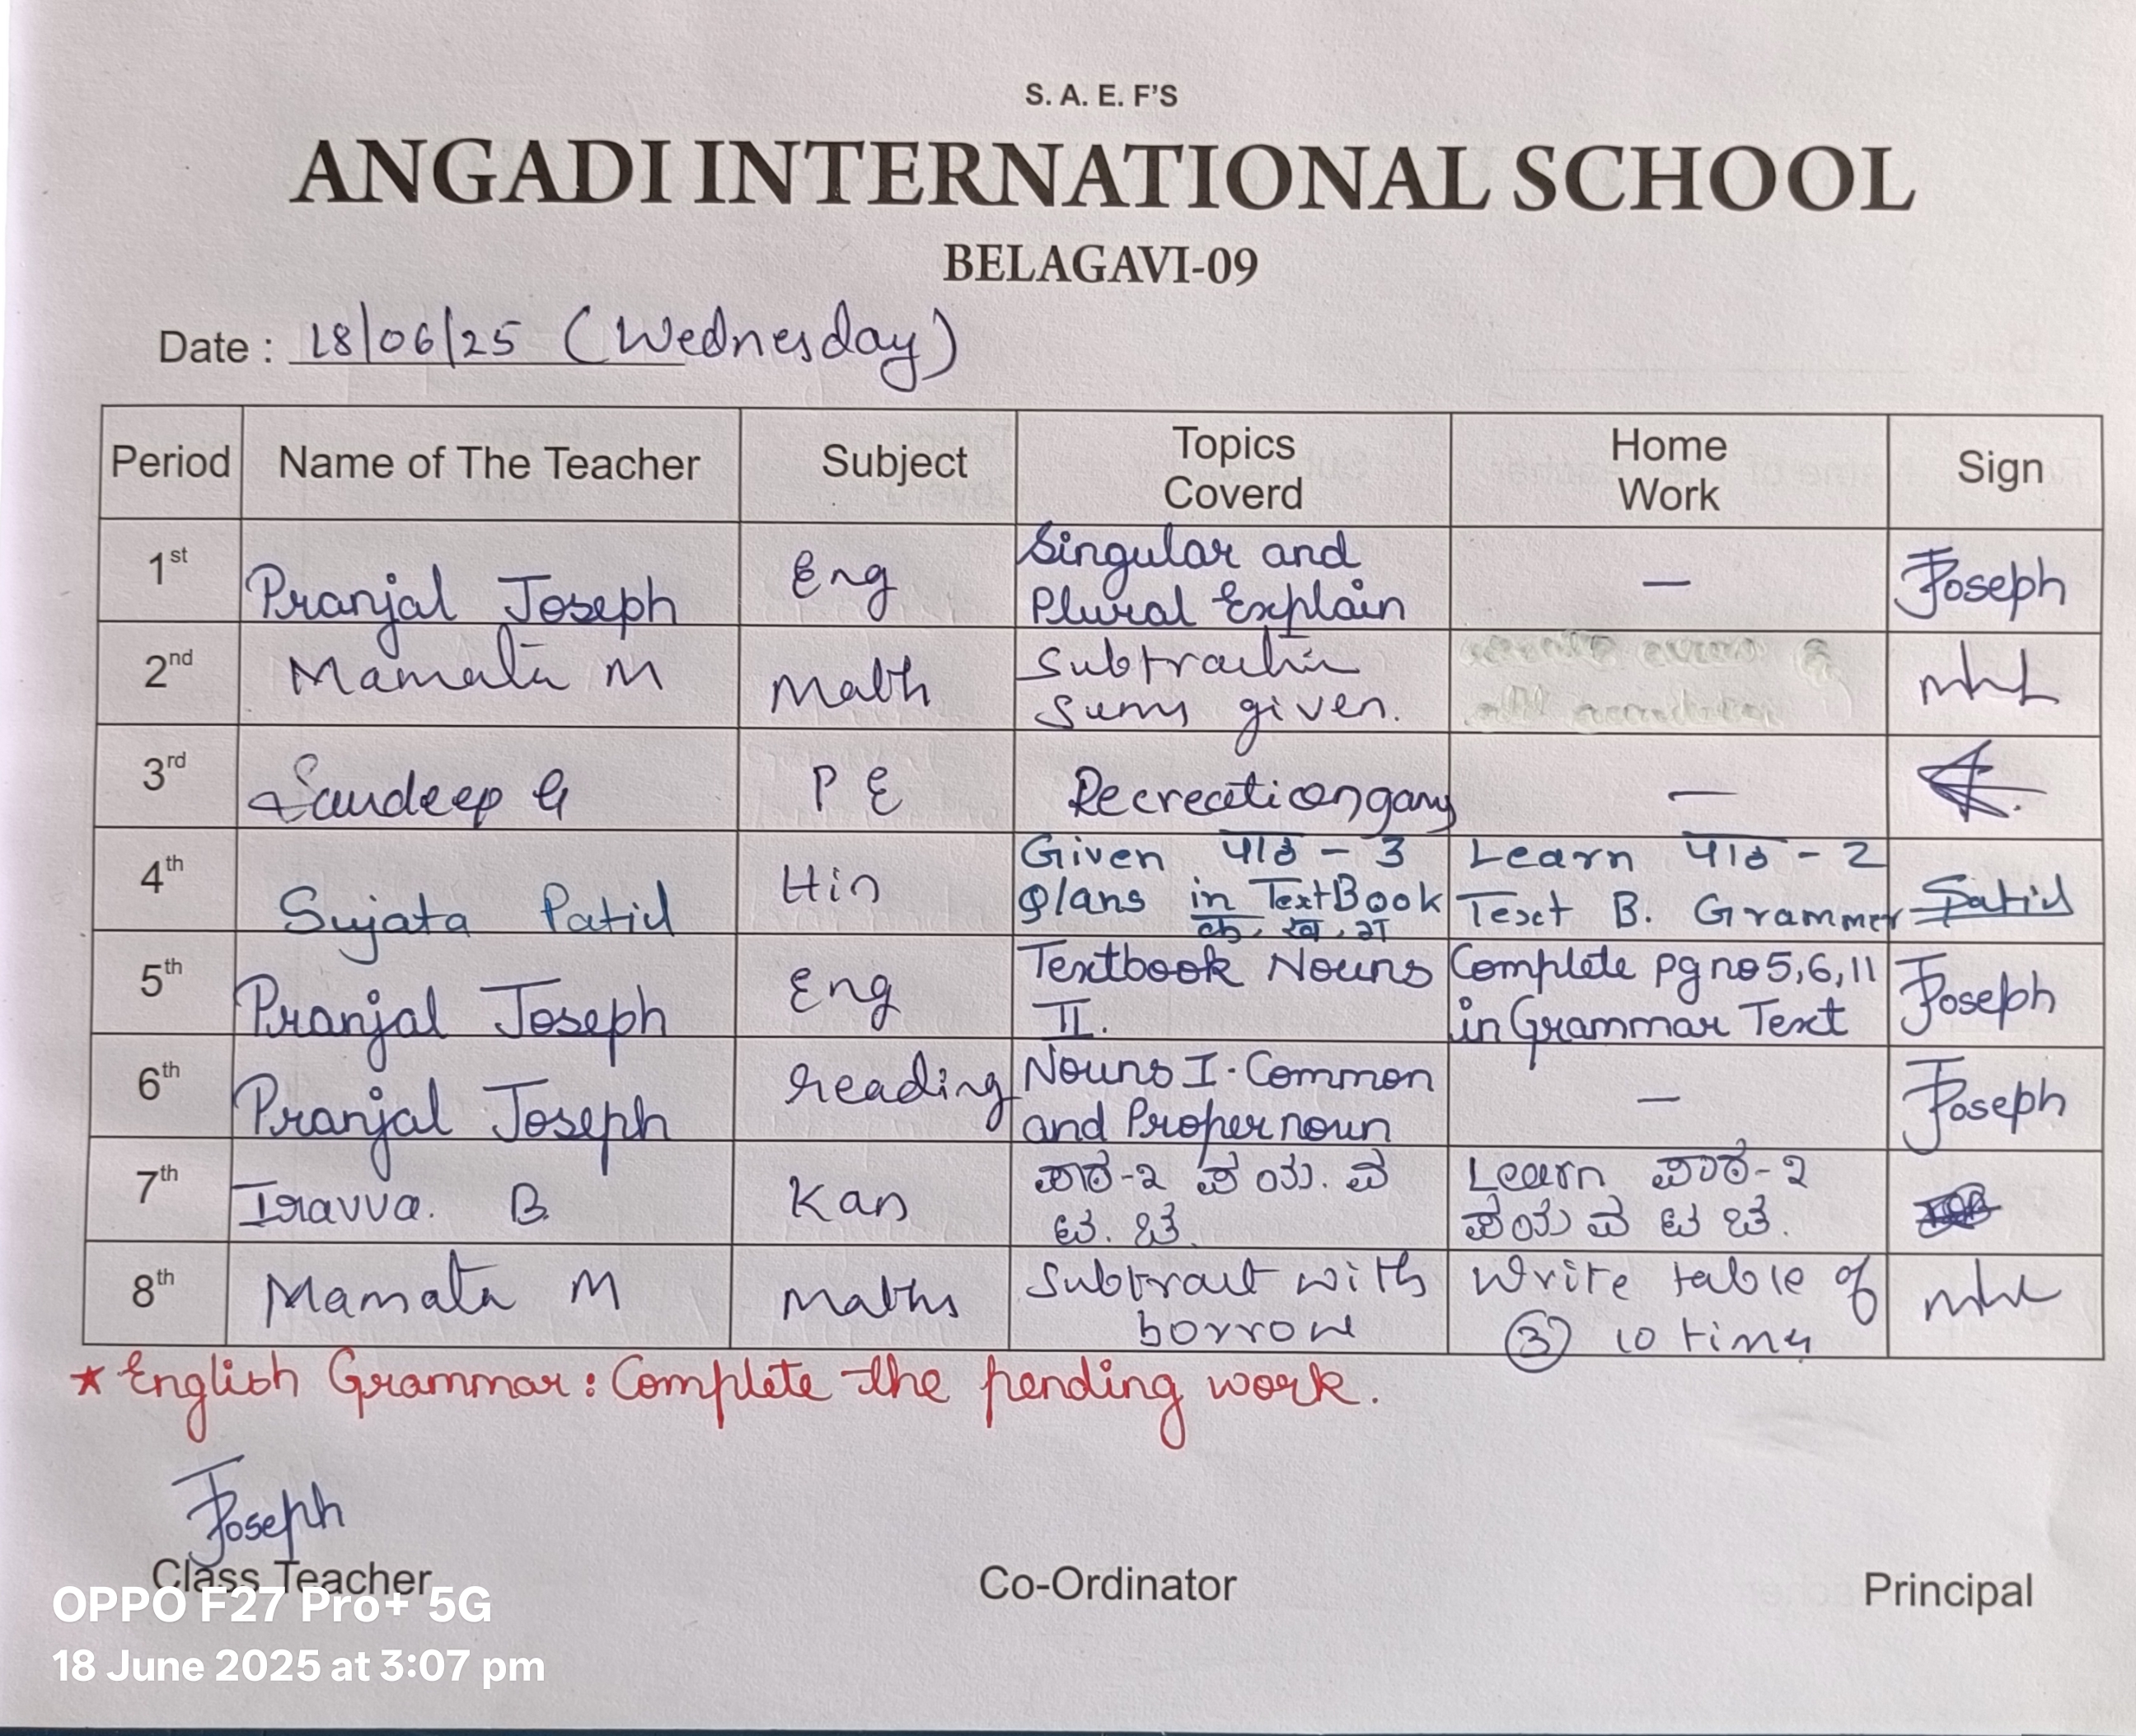 S. A. E. F'S
ANGADI INTERNATIONAL SCHOOL
BELAGAVI-09
Date : 18/06/25 (Wednesday)
Period Name of The Teacher Subject Topics Coverd Home Work Sign
1st Pranjal Joseph Eng Singular and — Joseph
Plural Explain
2nd Mamata M Math Subtraction
Sums given.
3rd Sandeep G P E Recreation —
4th Sujata Patil Hin Given पाठ - 3 Learn पाठ - 2 Patil
in TextBook Text B. Grammer
क, ख, ग
5th Pranjal Joseph Eng Textbook Nouns Complete pg no 5,6,11 Joseph
II. in Grammar Text
6th Pranjal Joseph reading Nouns I. Common — Joseph
and Proper noun
7th Iravva. B. Kan ಪಾಠ-೨ ಪ ಯ. ವ Learn ಪಾಠ-೨
ಟ. ಚ. ಪ ಯ ವ ಟ ಚ.
8th Mamata M Maths Subtract with Write table of
borrow 3 10 times
* English Grammar : Complete the pending work.
Joseph
Class Teacher Co-Ordinator Principal
OPPO F27 Pro+ 5G
18 June 2025 at 3:07 pm